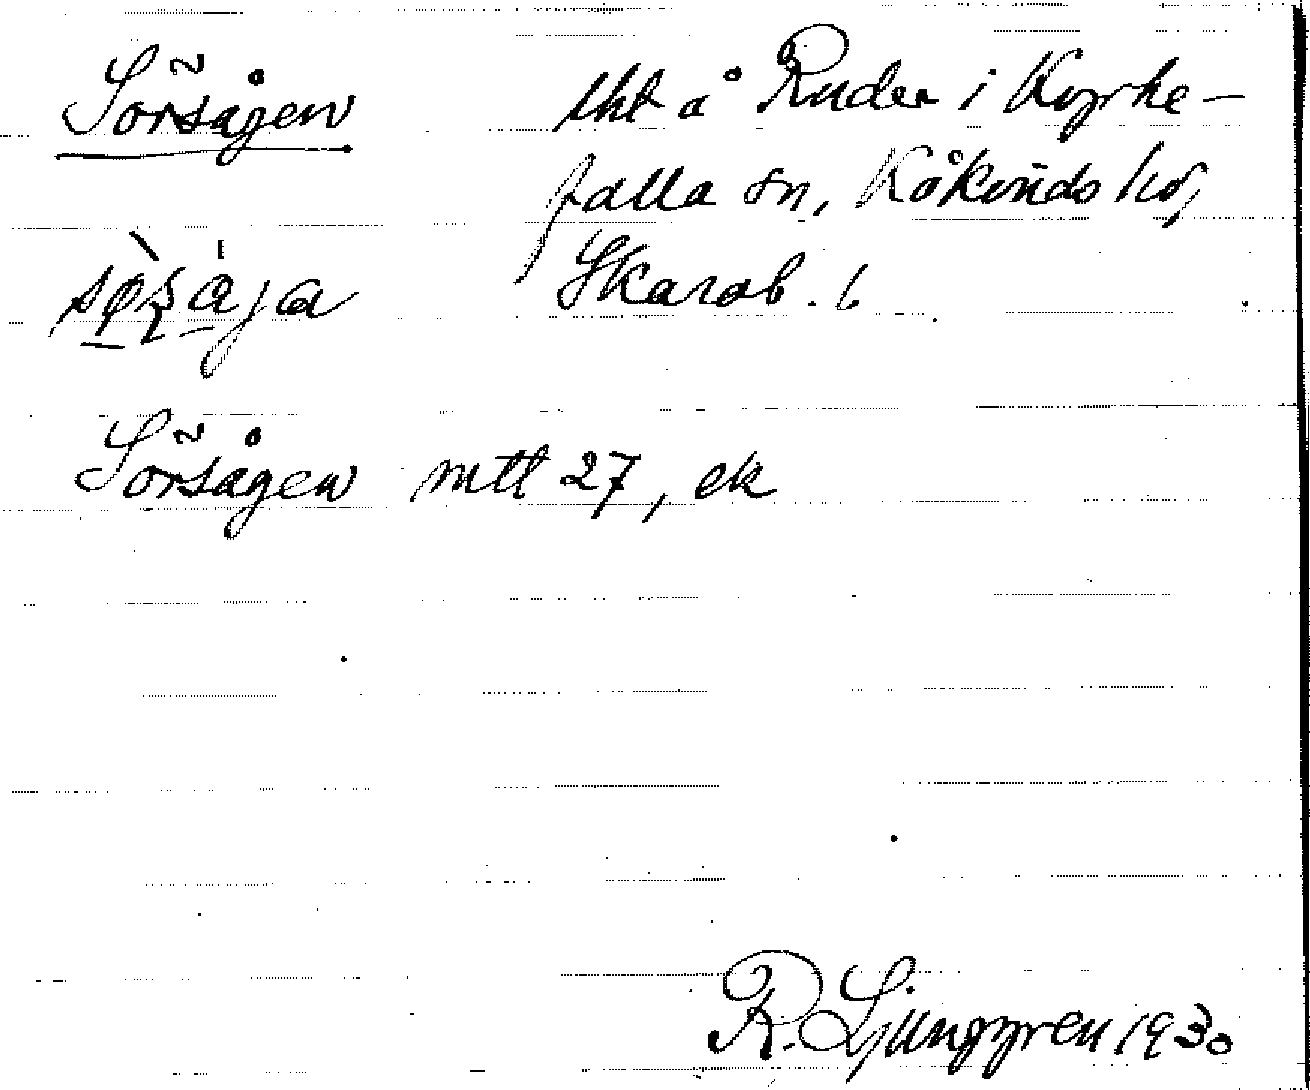 Sörsågen lht å Ruder i Kyrke-
falla sn, Kåkinds hd,
Skarab. l
Sörsågen mtl 27, ek
R. Ljunggren 1930